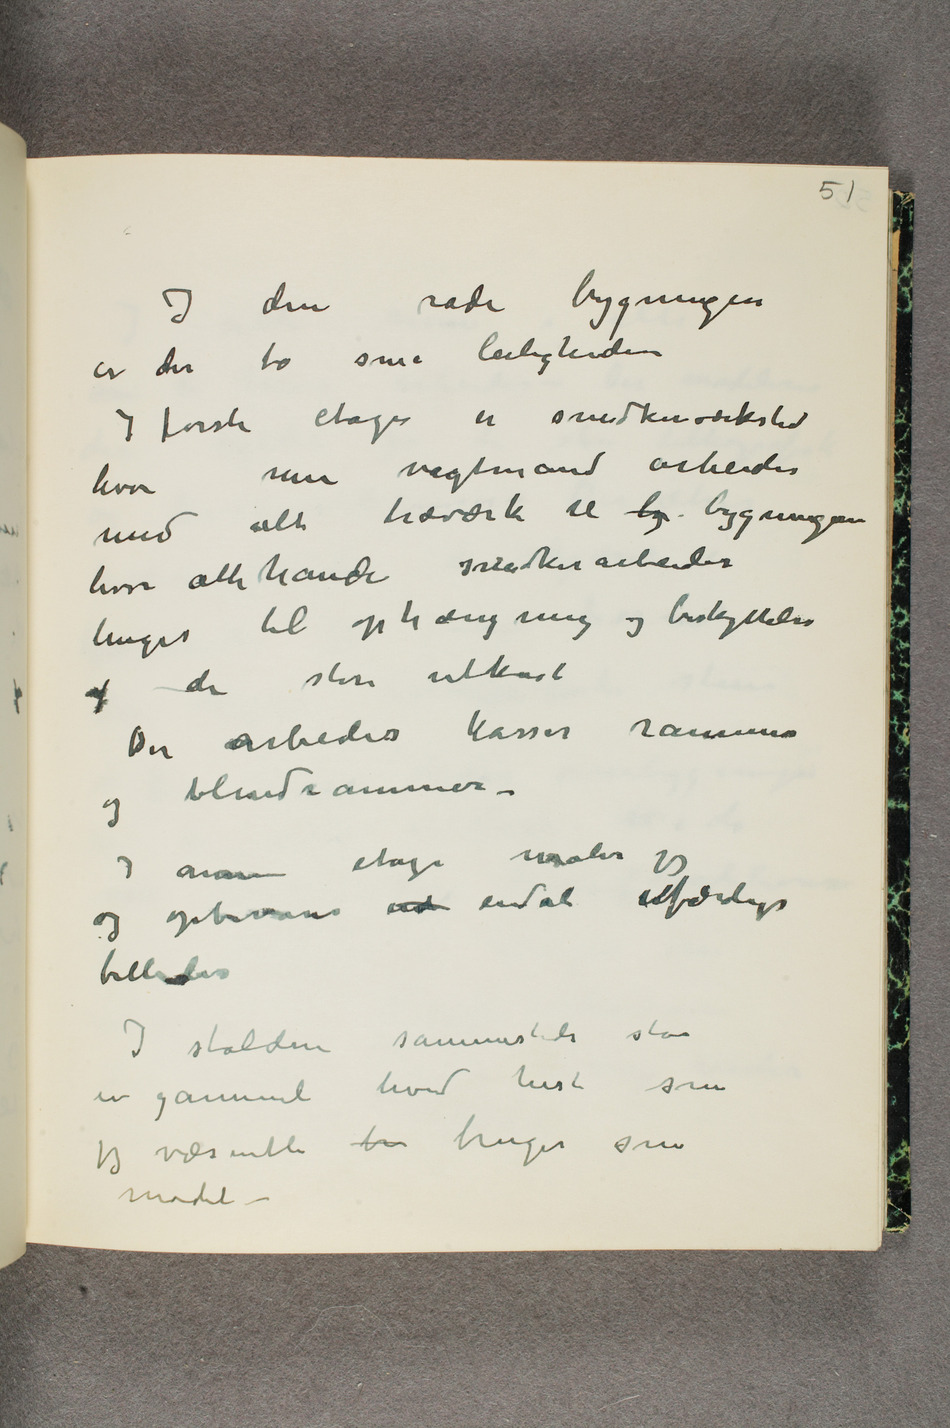 51
I den røde bygningen
er der to små leiligheder
I første etage er snedkerværksted
hvor min vagtmand arbeider
med alt træværk til by bygningen
hvor allehånde snedkerarbeider
bruges til ophængning og beskyttelse
af de store utkast
Der arbeides kasser rammer
og blindrammer –
I annen etage maler jeg
og opbevarer end endel utfærdige
billeder
I stalden sammesteds står
en gammel hvid hest som
jeg væsentli br bruger som
model –